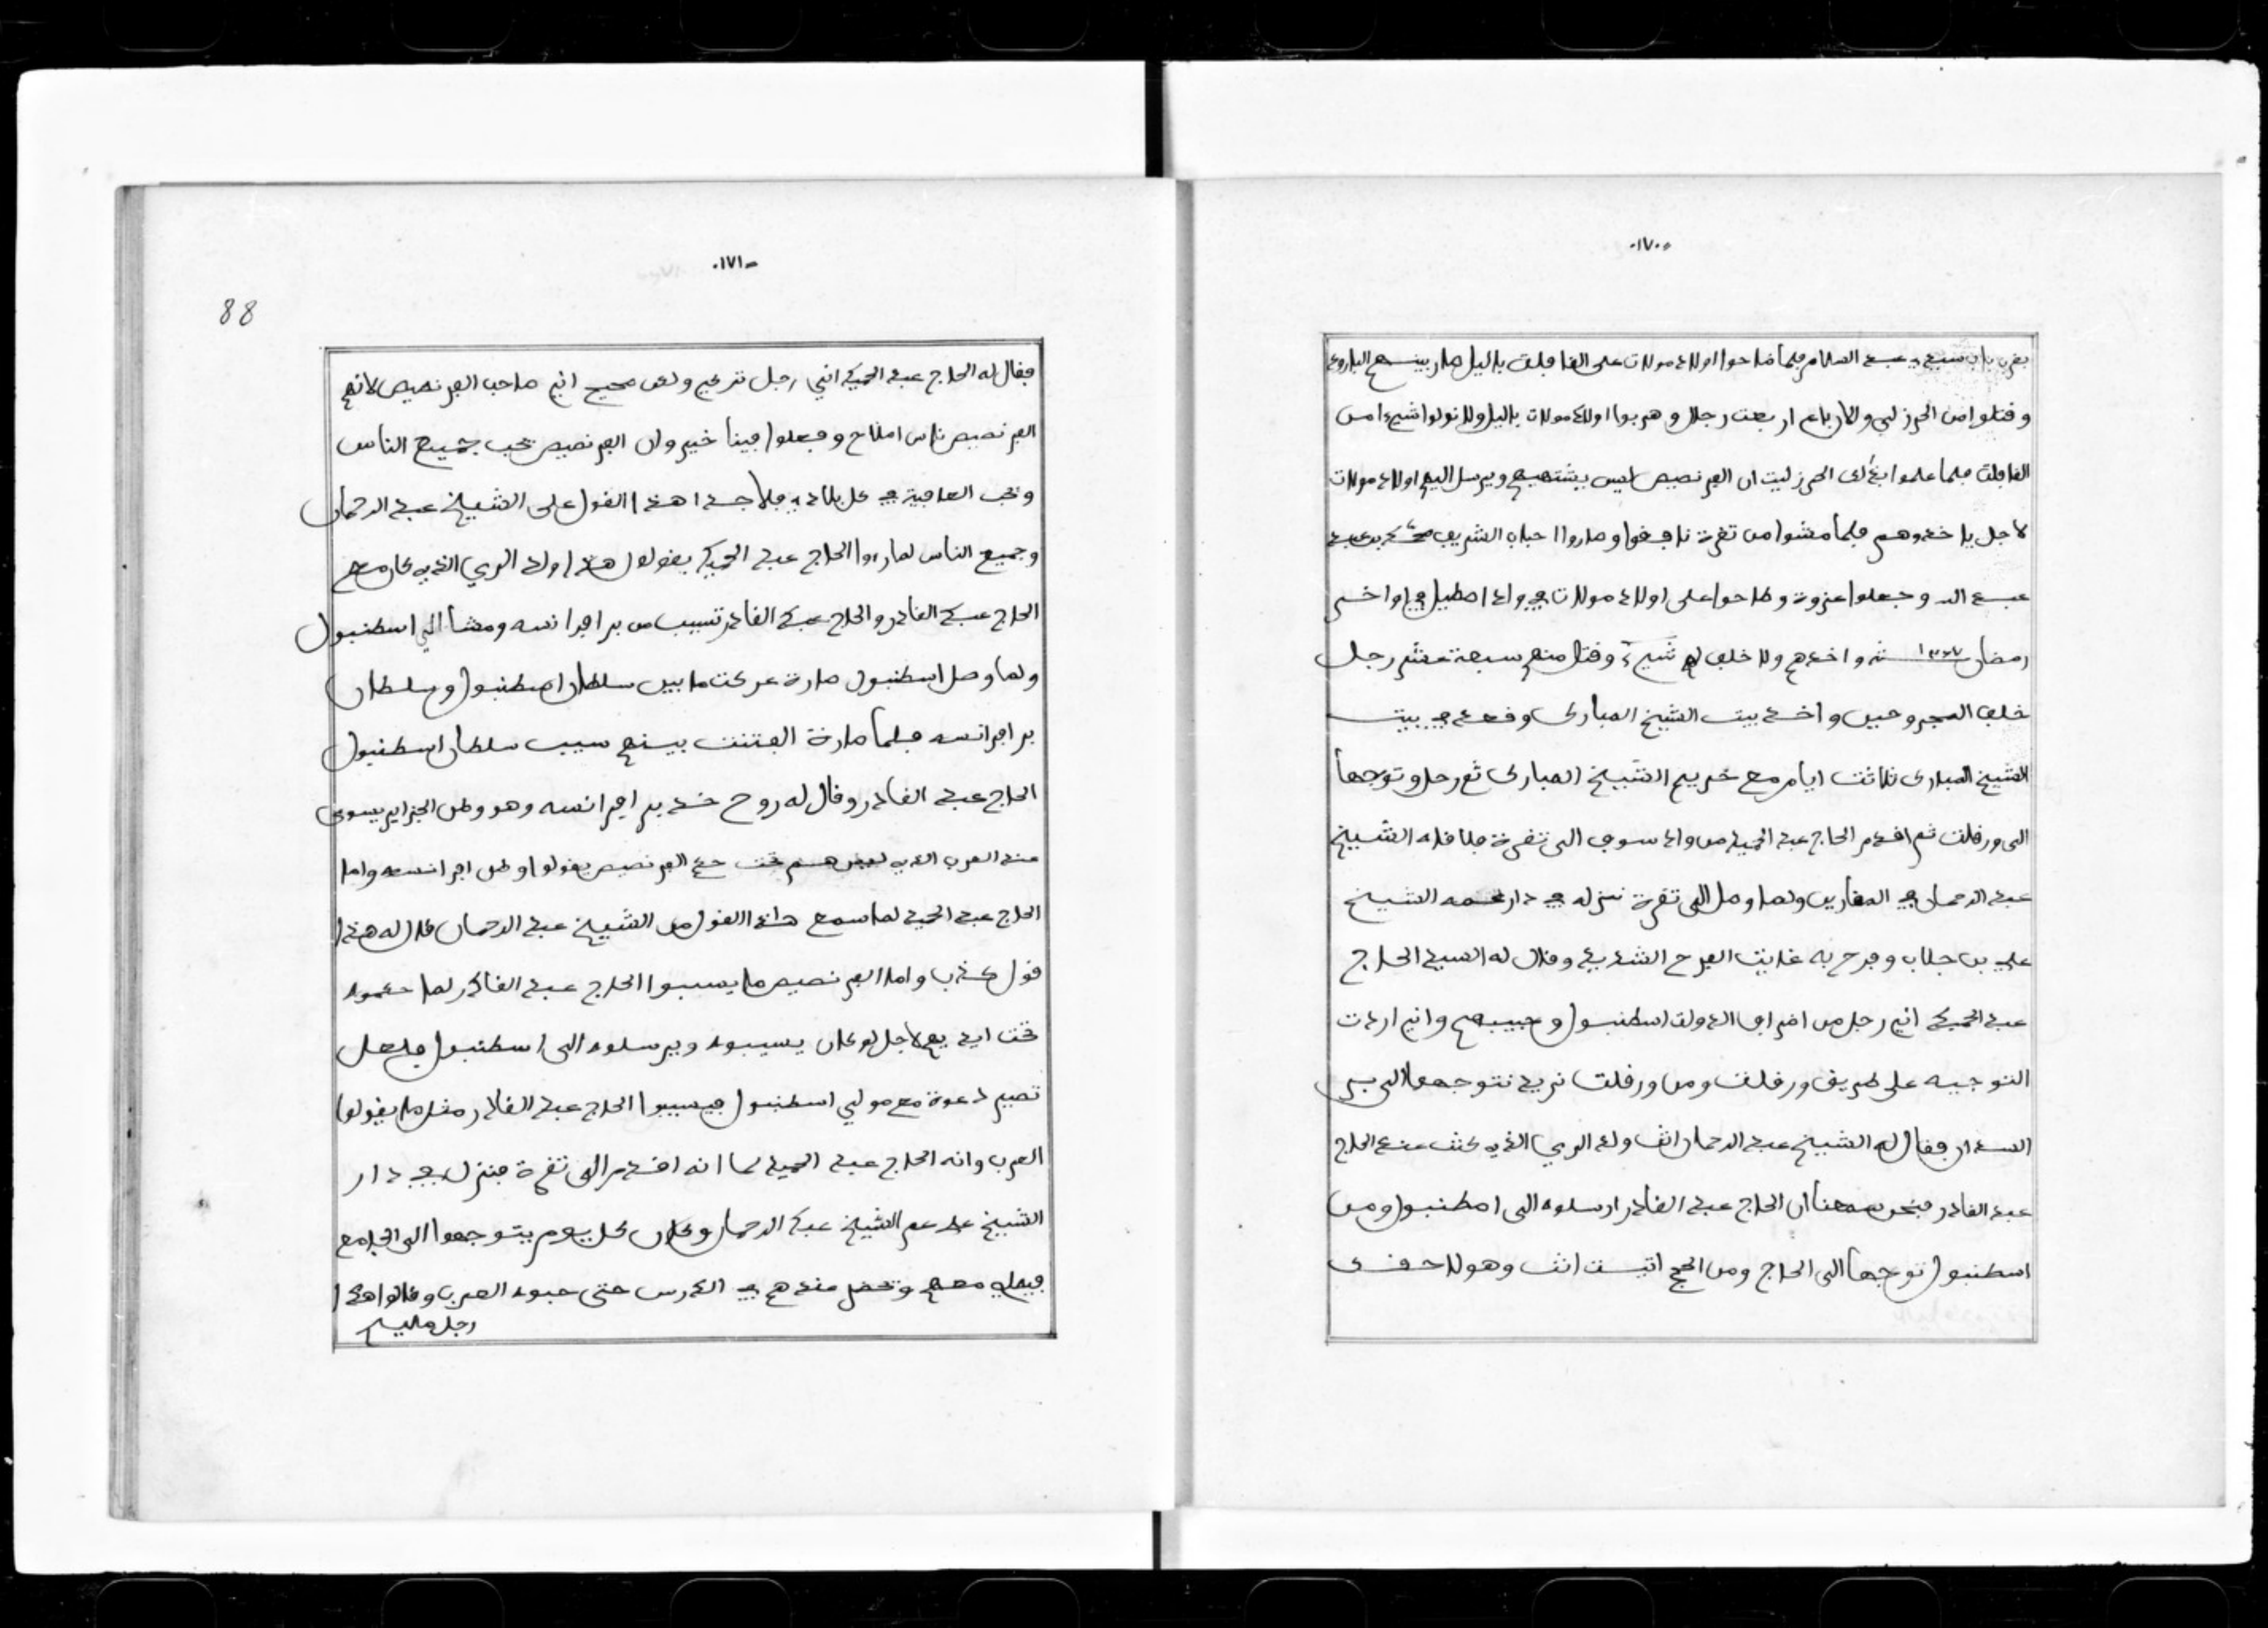 ١٧٠
بقرب باب سيدي عبد السلام فلما طاحوا اولاد مولات على القافلت باليل صار بينهم البارود
وقتلوا من الحرزلي والارباع اربعت رجال وهربوا اولاد مولات باليل ولا نولوا شيء من
القافلت فلما علموا بذلك الحرزليت ان الفرنصيص ليس يشتهيهم ويرسل اليهم اولاد مولات
لاجل ياخذوهم فلما مشوا من تقرت نافقوا وصاروا احباب الشريف محمد بن عبد
عبد الله وجعلوا غزوة وطاحوا على اولاد مولات في واد اصطيل في اواخر
رمضان سنة واخذهم ولا خلف لهم شيء وقتل منهم سبعة عشر رجل
خلف المجروحين واخذ بيت الشيخ المبارك وقعد في بيت
الشيخ المبارك ثلاثت ايام مع حريم الشيخ المبارك ثم رحل وتوجها
الى ورقلت ثم اقدم الحاج عبد الحميد من واد سوف الى تقرت فلاقاه الشيخ
عبد الرحمان في المقارين ولما وصل الى تقرت نزله في دار عمه الشيخ
علي بن جلاب وفرح به غايت الفرح الشديد وقال له السيد الحاج
عبد الحميد اني رجل من اطراف الدولت اسطنبول وحبيبهم واني اردت
التوجيه على طريق ورقلت ومن ورقلت نريد نتوجهوا الى بر
السودان فقال له الشيخ عبد الرحمان انت ولد الري الذي كنت عند الحاج
عبد القادر فنحن سمعنا ان الحاج عبد القادر ارسلوه الى اسطنبول ومن
اسطنبول توجها الى الحاج ومن الحج اتيت انت وهو لاحقك
١٧١
88
فقال له الحاج عبد الحميد انني رجل تركي ولكن صحيح اني صاحب الفرنصيص لانهم
الفرنصيص ناس املاح وفعلوا فينا خير وان الفرنصيص تحب جميع الناس
وتحب العافية في كل بلاد فلاجل هذا القول على الشيخ عبد الرحمان
وجميع الناس لما راوا الحاج عبد الحميد يقولوا هذا ولد الري الذي كان مع
الحاج عبد القادر والحاج عبد القادر تسيب من بر افرانسه ومشا الي اسطنبول
ولما وصل اسطنبول صارة عركت ما بين سلطان اسطنبول وسلطان
بر افرانسه فلما صارة الفتنت بينهم سيب سلطان اسطنبول
الحاج عبد القادر وقال له روح خذ بر افرانسه وهو وطن الجزاير يسوى
عند العرب الذي ليس هم تحت حكم الفرنصيص يقولوا وطن افرانسه واما
الحاج عبد الحميد لما سمع هاذا القول من الشيخ عبد الرحمان قال له هذا
قول كذب واما الفرنصيص ما يسيبوا الحاج عبد القادر لما حكموه
تحت ايديهم لاجل لو كان يسيبوه ويرسلوه الى اسطنبول فلعل
تصير دعوة مع مولى اسطنبول فيسيبوا الحاج عبد القادر مثل ما يقولوا
العرب وانه الحاج عبد الحميد لما انه اقدم الى تقرت فنزل في دار
الشيخ علي عم الشيخ عبد الرحمان وكان كل يوم يتوجهوا الى الجامع
فيصلي معهم وتحضل عندهم في الدرس حتى حبوه العرب وقالوا هذا
رجل مليح